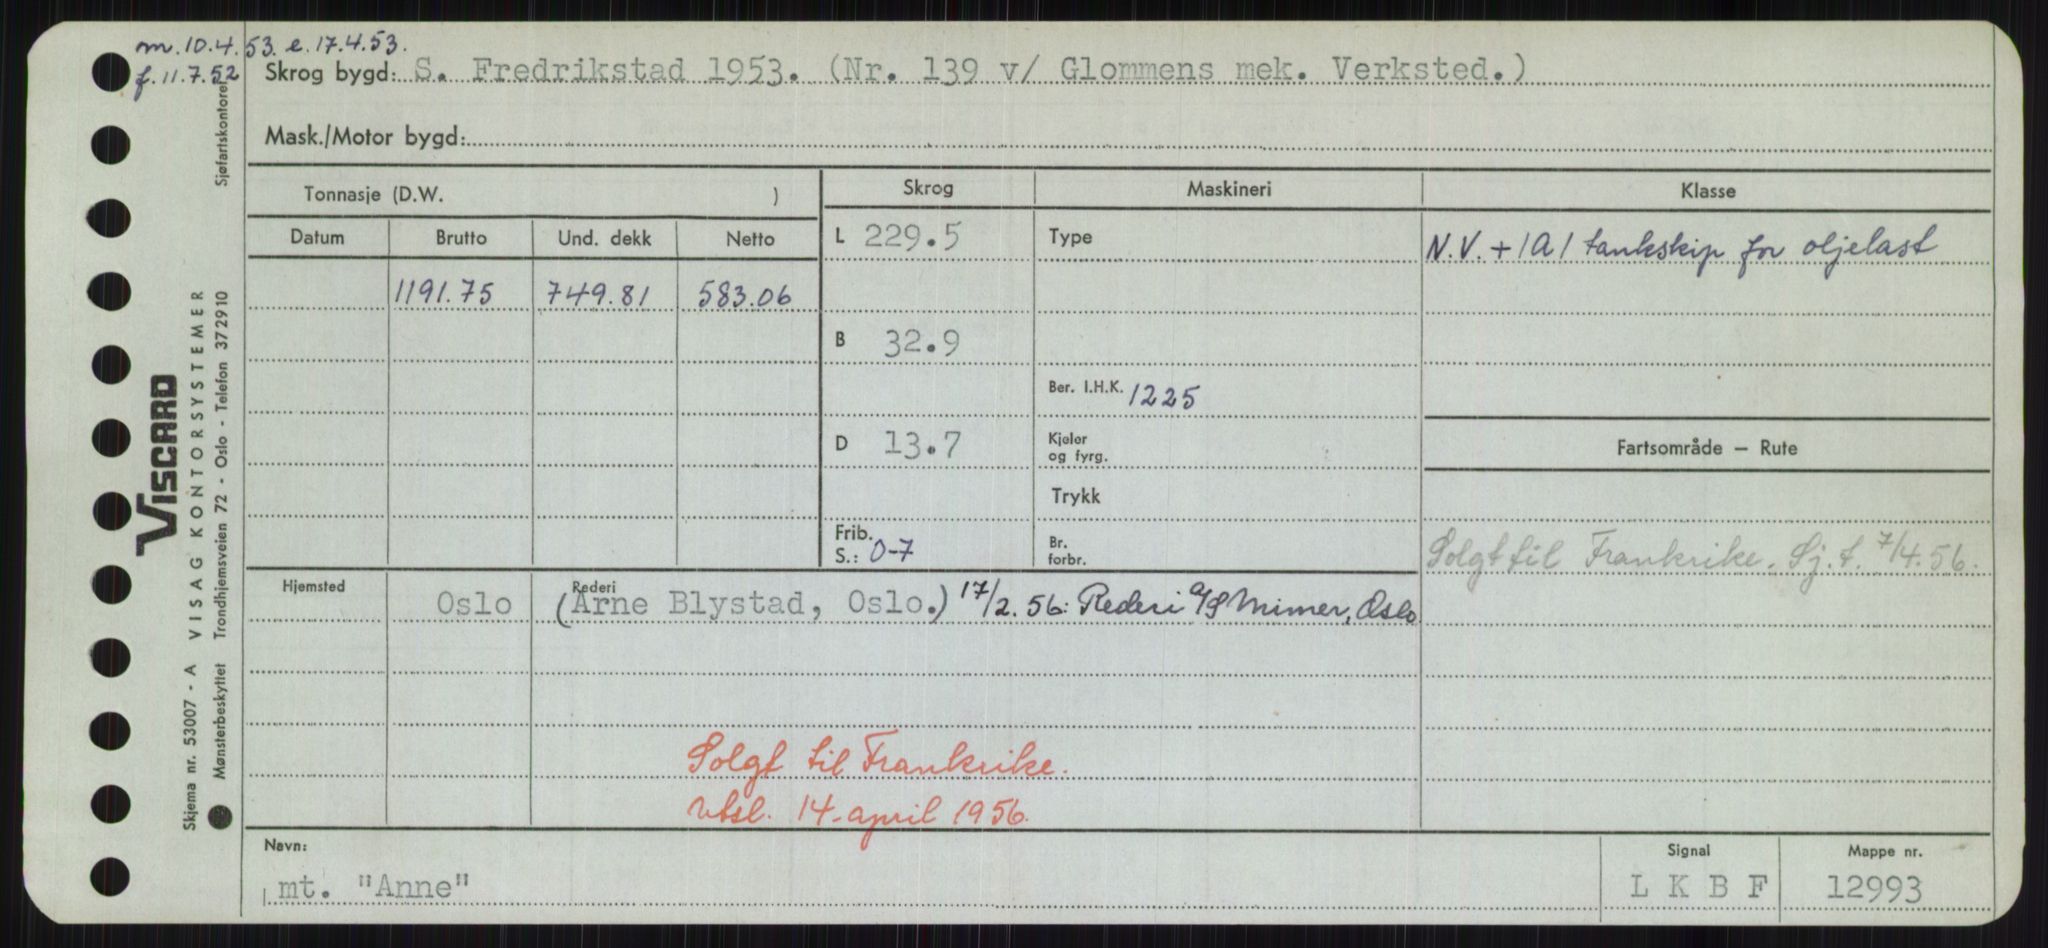 m. 10.4.53. e. 17.4.53.
f. 11.7.52
Skrog bygd: S. Fredrikstad 1953. (Nr. 139 v/ Glommens mek. Verksted.)
Mask./Motor bygd:
Tonnasje (D.W. )
Skrog
Maskineri
Klasse
Datum
Brutto
Und. dekk
Netto
L 229.5
Type
N.V. + 1A1 tankskip for oljelast
1191.75
749.81
583.06
B 32.9
Ber. I.H.K. 1225
D 13.7
Kjeler
og fyrg.
Fartsområde — Rute
Trykk
Frib.
S.: 0-7
Br.
forbr.
Solgt til Frankrike. Sj.t. 7/4.56.
Hjemsted
Rederi
Oslo
(Arne Blystad, Oslo.) 17/2.56: Rederi A/S Mimer, Oslo
Solgt til Frankrike.
utsl. 14. april 1956.
Navn:
mt. "Anne"
Signal
L K B F
Mappe nr.
12993
VISCARD
Skjema nr. 53007 - A VISAG KONTORSYSTEMER
Mønsterbeskyttet Trondhjemsveien 72 - Oslo - Telefon 372910 Sjøfartskontoret